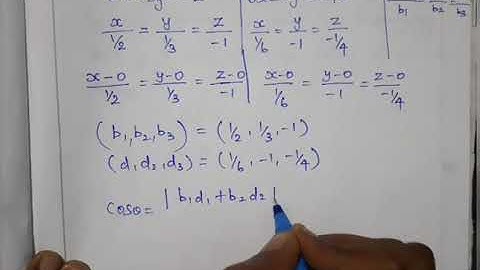 x/1/2 = y/1/3 = z/-1 | x/1/6 = y/-1 = z/-1/4
b₁ b₂ b₃
x-0/1/2 = y-0/1/3 = z-0/-1 | x-0/1/6 = y-0/-1 = z-0/-1/4
(b₁,b₂,b₃) = (1/2, 1/3, -1)
(d₁ d₂, d₃) = (1/6, -1, -1/4)
cosθ = | b₁d₁ + b₂d₂ |